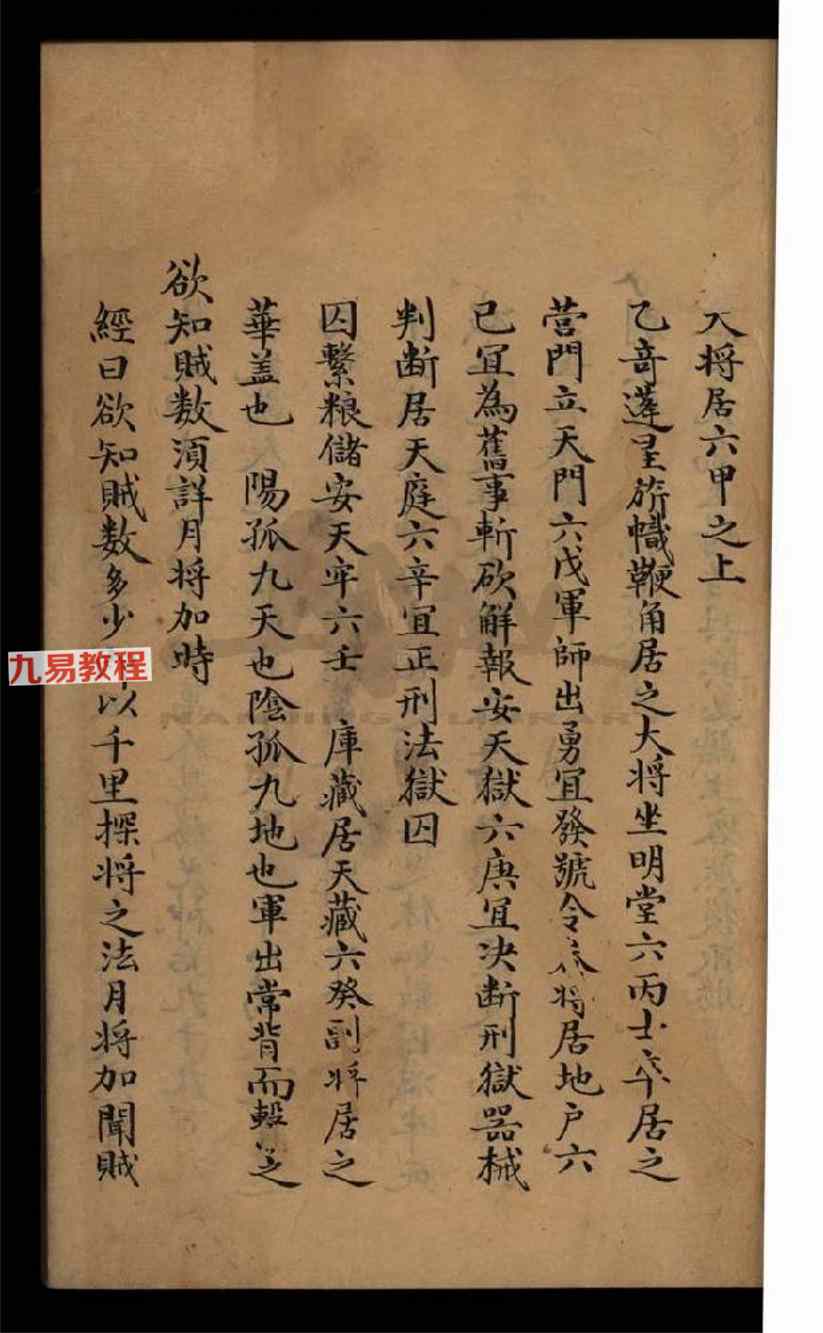 大将居六甲之上
乙竒蓬星旂幟鞭角居之大将坐明堂六丙士卒居之
营門立天門六戊軍師出勇宜發號令 将居地户六
已宜為舊事斬砍解報安天獄六庚宜决断刑獄器械
判断居天庭六辛宜正刑法獄囚
囚繫粮儲安天牢六壬 庫藏居天藏六癸副将居之
華盖也 陽孤九天也陰孤九地也軍出常背而擊之
欲知賊数湏詳月将加時
經曰欲知賊数多少 以千里探将之法月将加聞賊
九易教程